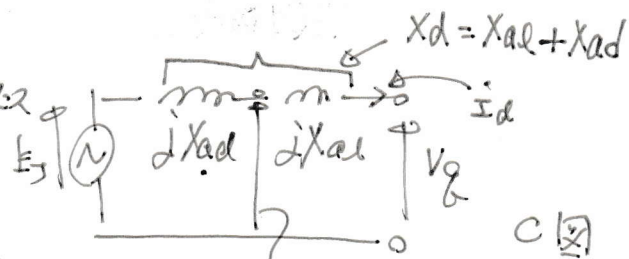 Xd = Xal + Xad
İd
Ef
jXad
jXal
Vq
C図